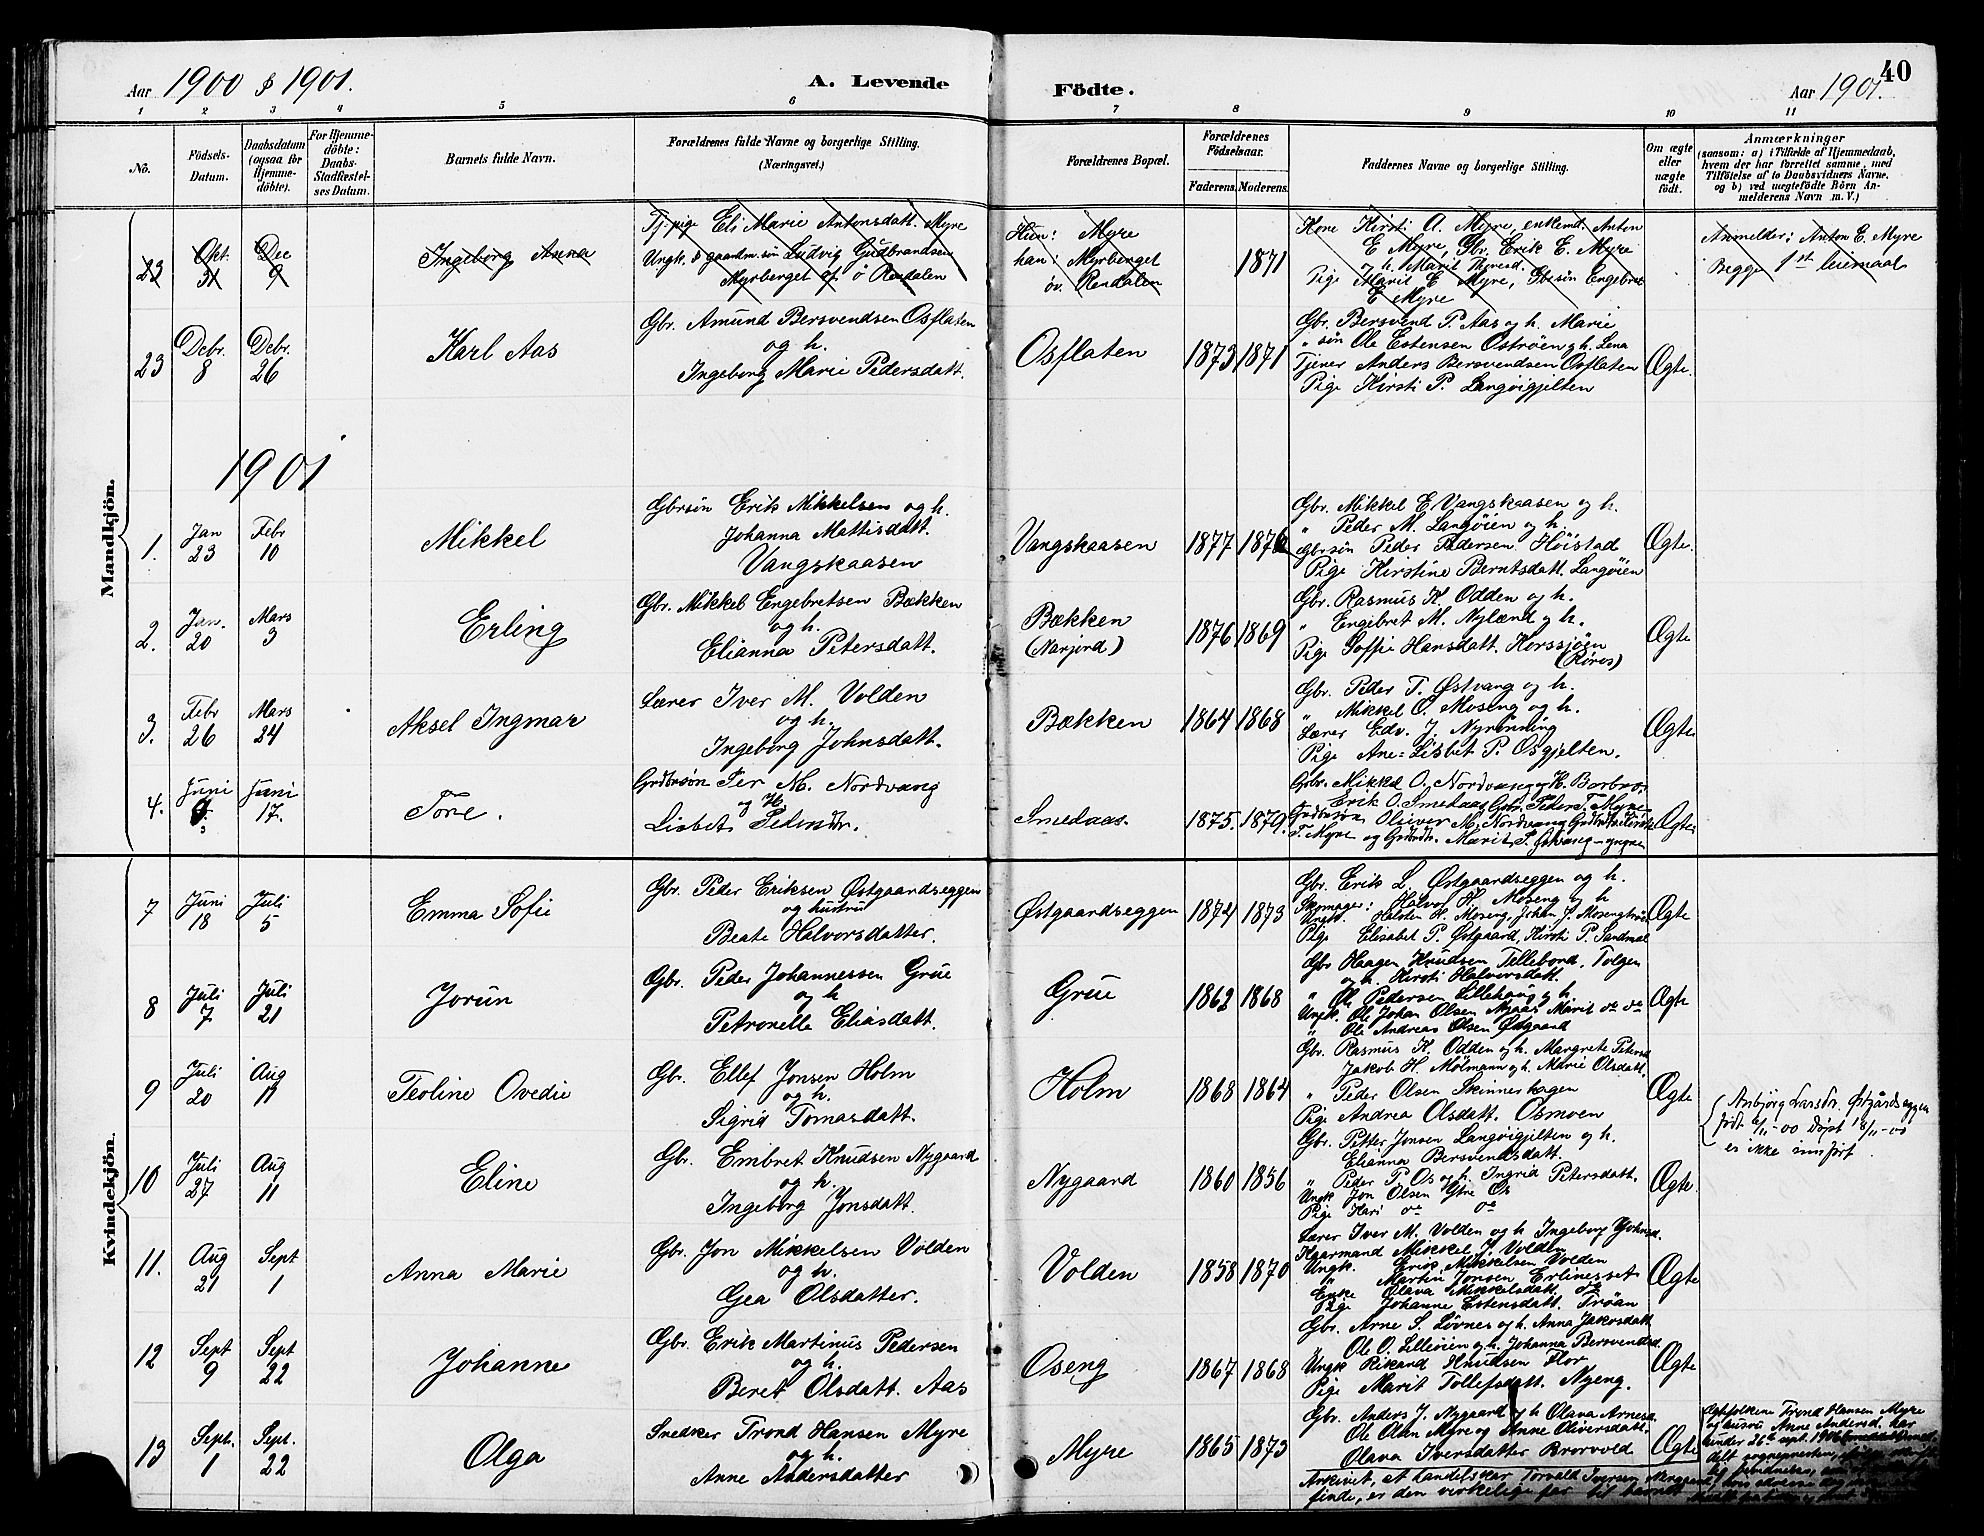 Aar 1900 & 1901.
A. Levende Födte.
Aar 1901. 40
1 2 3 4 5 6 7 8 9 10 11
No.
Födsels-Datum.
Daabsdatum (ogsaa for Hjemme-döbte).
For Hjemme-döbte: Daabs-Stadfæstel-ses Datum.
Barnets fulde Navn.
Forældrenes fulde Navne og borgerlige Stilling. (Næringsvei.)
Forældrenes Bopæl.
Forældrenes Födselsaar.
Faderens. Moderens.
Faddernes Navne og borgerlige Stilling.
Om ægte eller uægte födt.
Anmærkninger
(saasom: a) i Tilfælde af Hjemmedaab, hvem der har forrettet samme, med Tilföielse af to Daabsvidners Navne, og b) ved uægtefödte Börn An-melderens Navn m. V.)
Mandkjön.
23 Okt. 31 Dec 9
Ingeborg Asena
Tj. pige Eli Marie Antonsdatt. Myre
Ungk. & gaardm. sön Ludvig Gudbrandsen
Myrberget af ö Rendalen
Hun: Myre
han: Myrberget
öv. Rendalen
1871
Kone Kirsti A. Myre, enkemd. Anton
E Myre, Gbr. Erik E. Myre
Pige Marit E Myre, Gbrsön Engebret
E Myre
Anmelder: Anton E. Myre
Begge 1st leiermaal
23 Debr. 8 Debr. 26
Karl Aas
Gbr. Amund Bersvendsen Osflaten
og h.
Ingeborg Marie Pedersdatt.
Osflaten
1873 1871
Gbr. Bersvend P. Aas og h. Marie
" sön Ole Estensen Oströen g h. Lena
Tjener Anders Bersvendsen Osflaten
Pige Kirsti P. Langöigjelten
Ægte.
1901
1. Jan 23 Febr 10
Mikkel
Gbrsön Erik Mikkelsen og h.
Johanna Mattisdatt.
Vangskaasen
Vangskaasen
1877 1876
Gbr. Mikkel E Vangskaasen og h.
" Peder M. Langöien og h.
Gbrsön Peder Pedersen Höistad
Pige Kirstine Berntsdatt. Langöien
Ægte.
2. Jan. 20 Mars 3
Erling
Gbr. Mikkel Engebretsen Bækken
og h.
Elianna Petersdatt.
Bækken
(Narjord)
1876 1869
Gbr. Rasmus K. Odden og h.
" Engebret M. Nyland g h.
Pige Goffie Hansdatt. Korssjöen
(Röros)
Ægte
3. Febr 26 Mars 24
Aksel Ingmar
Lærer Iver M. Volden
og h.
Ingeborg Johnsdatt.
Bækken
1864 1868
Gbr. Peder T. Østvang og h.
" Mikkel O. Moseng og h.
Lærer Edv. J. Nyrönning
Pige Ane-Lisbet P. Osgjelten.
Ægte
4. Juni Juni 17.
Tore.
Grdbrsön Per M. Nordvang
og H.
Lisbet Pedersdr.
Smedaas.
1875. 1879.
Grbr. Mikkel O. Nordvang og H. Borbro,
Erik O. Smedaas, Gbr. Peder T. Myre
Grdbrsön Oliver M. Nordvang
T. Myre og Grbrdtr. Marit P. Østvang - yngre
Ægte
Kvindekjön.
7 Juni 18 Juli 5
Emma Sofie
Gbr. Peder Eriksen Østgaardseggen
og hustru
Beate Halvorsdatter.
Østgaardseggen
1874 1873
Gbr. Erik L. Østgaardseggen og h.
Skomager: Halvor H. Moseng og h
Ungk. Halsten H. Moseng, Johan J. Mosengtröen
Pige Elisabet P. Østgaard, Kirsti P. Sandmæl
Ægte
8 Juli 7 Juli 21
Jorun
Gbr. Peder Johannessen Grue
og h
Petronelle Eliasdatt.
Grue
1862 1868
Gbr Haagen Knudsen Tellebord, Tolgen
og h. Kirsti Halvorsdatt.
" Ole Pedersen Lillehaug g h
Ungk. Ole Johan Olsen Nyaas Marit do do
" Ole Andreas Olsen Østgaard
Ægte
9 Juli 20 Aug 11
Teoline Ovedie
Gbr. Ellef Jonsen Holm
og h.
Sigrid Tomasdatt.
Holm
1868 1864
Gbr. Rasmus K. Odden og h. Margrete Petersd
Jakob H. Mölmann og h. Marie Olsdatt.
" Peder Olsen Skinnerhagen
Pige Andrea Olsdatt. Osmoen
Ægte
Anbjörg Larsdr. Østgårdseggen
födt 9/11-00 Döpt 18/11-00
er ikke innfört
10 Juli 27 Aug 11
Eline
Gbr. Embret Knudsen Nygaard
og h.
Ingeborg Jonsdatt.
Nygaard
1860 1856
Gbr. Petter Jonsen Langöigjelten og h.
Elianna Bersvendsdatt.
" Peder P. Os og h. Ingrid Petersdatt.
Ungk Jon Olsen Ytre Os
Pige Kari do do
Ægte
11. Aug 21 Sept 1
Anna Marie
Gbr. Jon Mikkelsen Volden
og h.
Gea Olsdatter.
Volden
1858 1870
Lærer Iver M. Volden og h Ingeborg Johnsd.
Kaarmand Mikkel J. Volden
Ungk. Erik Mikkelsen Volden
" Martin Jonsen Erlinesset
Enke Olava Mikkelsdatt. do
Pige Johanne Estensdatt. Tröan
Ægte
12 Sept 9 Sept 22
Johanne
Gbr. Erik Martinus Pedersen
og h.
Beret Olsdatt. Aas
Oseng
1867 1868
Gbr. Arne S. Lövnes og h. Anna Jakobsdatt
" Ole O. Lilleöien og h. Johanna Bersvendsd.
Ungk Rikard Knudsen Flor
Pige Marit Tollefsdatt. Nyeng.
Ægte
13 Sept. 1 Sept. 22
Olga
Snedker Trond Hansen Myre
og h.
Anne Andersdatter
Myre
1865 1873
Gbr. Anders J. Nygaard og h Olava Arnesd.
Ole Olsen Myre og Anne Oliversdatt.
Olava Iversdatter Brovold
Ægte
Ægtefolkene Trond Hansen Myre
og hustru Anne Andersd. har
under 26de sept. 1906
delt sogneprestem,
Arkivet, at handelskar Torvald Iversen
finde, er den virkelige far til barnet